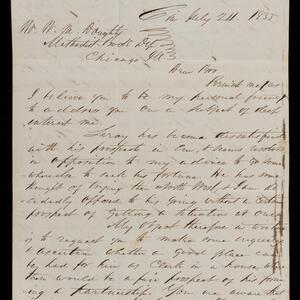 Cin July 24, 1855
Mr. W. M. Doughty
Methodist Book Dep
Chicago Ill.
Dear Bro.
Permit me as
I believe you to be my personal friend
to address you on a subject of deep
interest me.
Leroy has become dissatisfied
with his prospects in Cin, & seems resolved
in opposition to my advice to go some
where else to seek his fortune. He has some
thought of trying the North West, & I am de-
cidedly opposed to his going without a certain
prospect of getting a situation at once.
My object therefore in writing
is to request you to make some enquiry
& ascertain whether a good place can
be had for him as Clerk in a house where
there would be a fair prospect of his form
ing a partnership. You are aware that